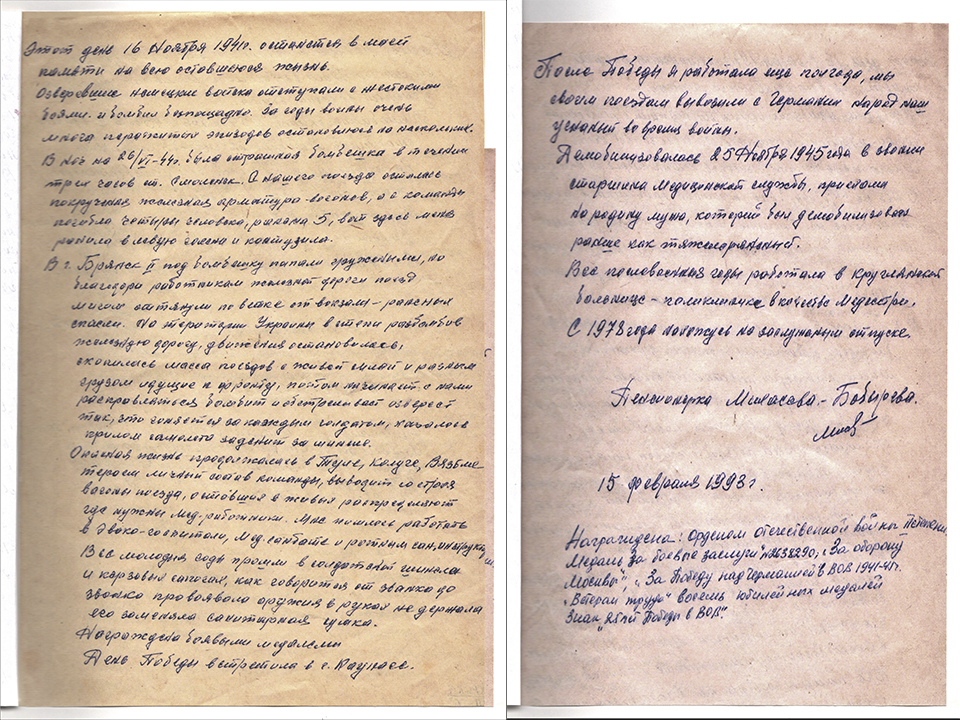 Этот день 16 Ноября 1941г. останется в моей
памяти на всю оставшеюся жизнь.
Озверевшие немецкие войска отступали с жестокими
боями и бомбили беспощадно. За годы войны очень
много пережитых эпизодов
В ночь на 26/VI-44г. была страшная бомбёшка в течении
трех часов ст. Смоленск. С нашего поезда осталась
покрученая железная арматура вагонов, а с команды
погибло четыры человека, ранена 5, вот здесь меня
ранило в левую голень и контузило.
В г. Брянск II под бомбёшку попали гружеными, но
благодоря работникам железной дороги поезд
мигом оттянули по ветке от вокзала – раненых
спасли. На територии Украины в степи разбомбив
железную дорогу, движения остановилось,
скопилась масса поездов с живой силой и разным
грузом идущие к фронту, потом начинает с нами
расправляться бомбит и обстреливает озверест
так, что гоняется за каждым солдатом, казалось
крылом самолета заденит за шинше.
Опасная жизнь продолжалась в Туле, Калуге, Вязьме
теряем личный состав команды, выводит со строя
вагоны поезда, оставшия в живых распределяют
где нужны Мед-работники. Мне пришлось работать
в Эвако-госпитали, Медсанбате и ротным сан.инструктором
Все молодыя года прошли в солдатской шинели
и кирзовых сапогах, как говорится от звонка до
звонка провоявала оружия в руках не держала
его заменяла санитарная сумка.
Награждена боявыми медалями
День Победы встретила в г. Каунасе.
После Победы я работала еще полгода, мы
своим поездом вывозили с Германии народ наш
угнаный во время войны.
Демобилизовалась 25 Ноября 1945 года в звании
старшина Медицинской службы, приехали
на родину мужа, который был демобилизован
раньше как тяжелораненый.
Все послевоенныя годы работала в Круглянской
больнице – поликлинике в качестве Медсестры.
С 1978 года нахожусь на заслуженом отпуске.
Пенсионерка Минасова – Бобырева.
15 февраля 1993 г.
Награждена: Орденом отечественной войны
Медаль „За боевые заслуги" №3638290, „За оборону
Москвы", „За Победу над Германией в ВОВ 1941-45г.
„Ветеран труда" восемь юбилейных медалей
Знак „25 лет Победы в ВОВ".